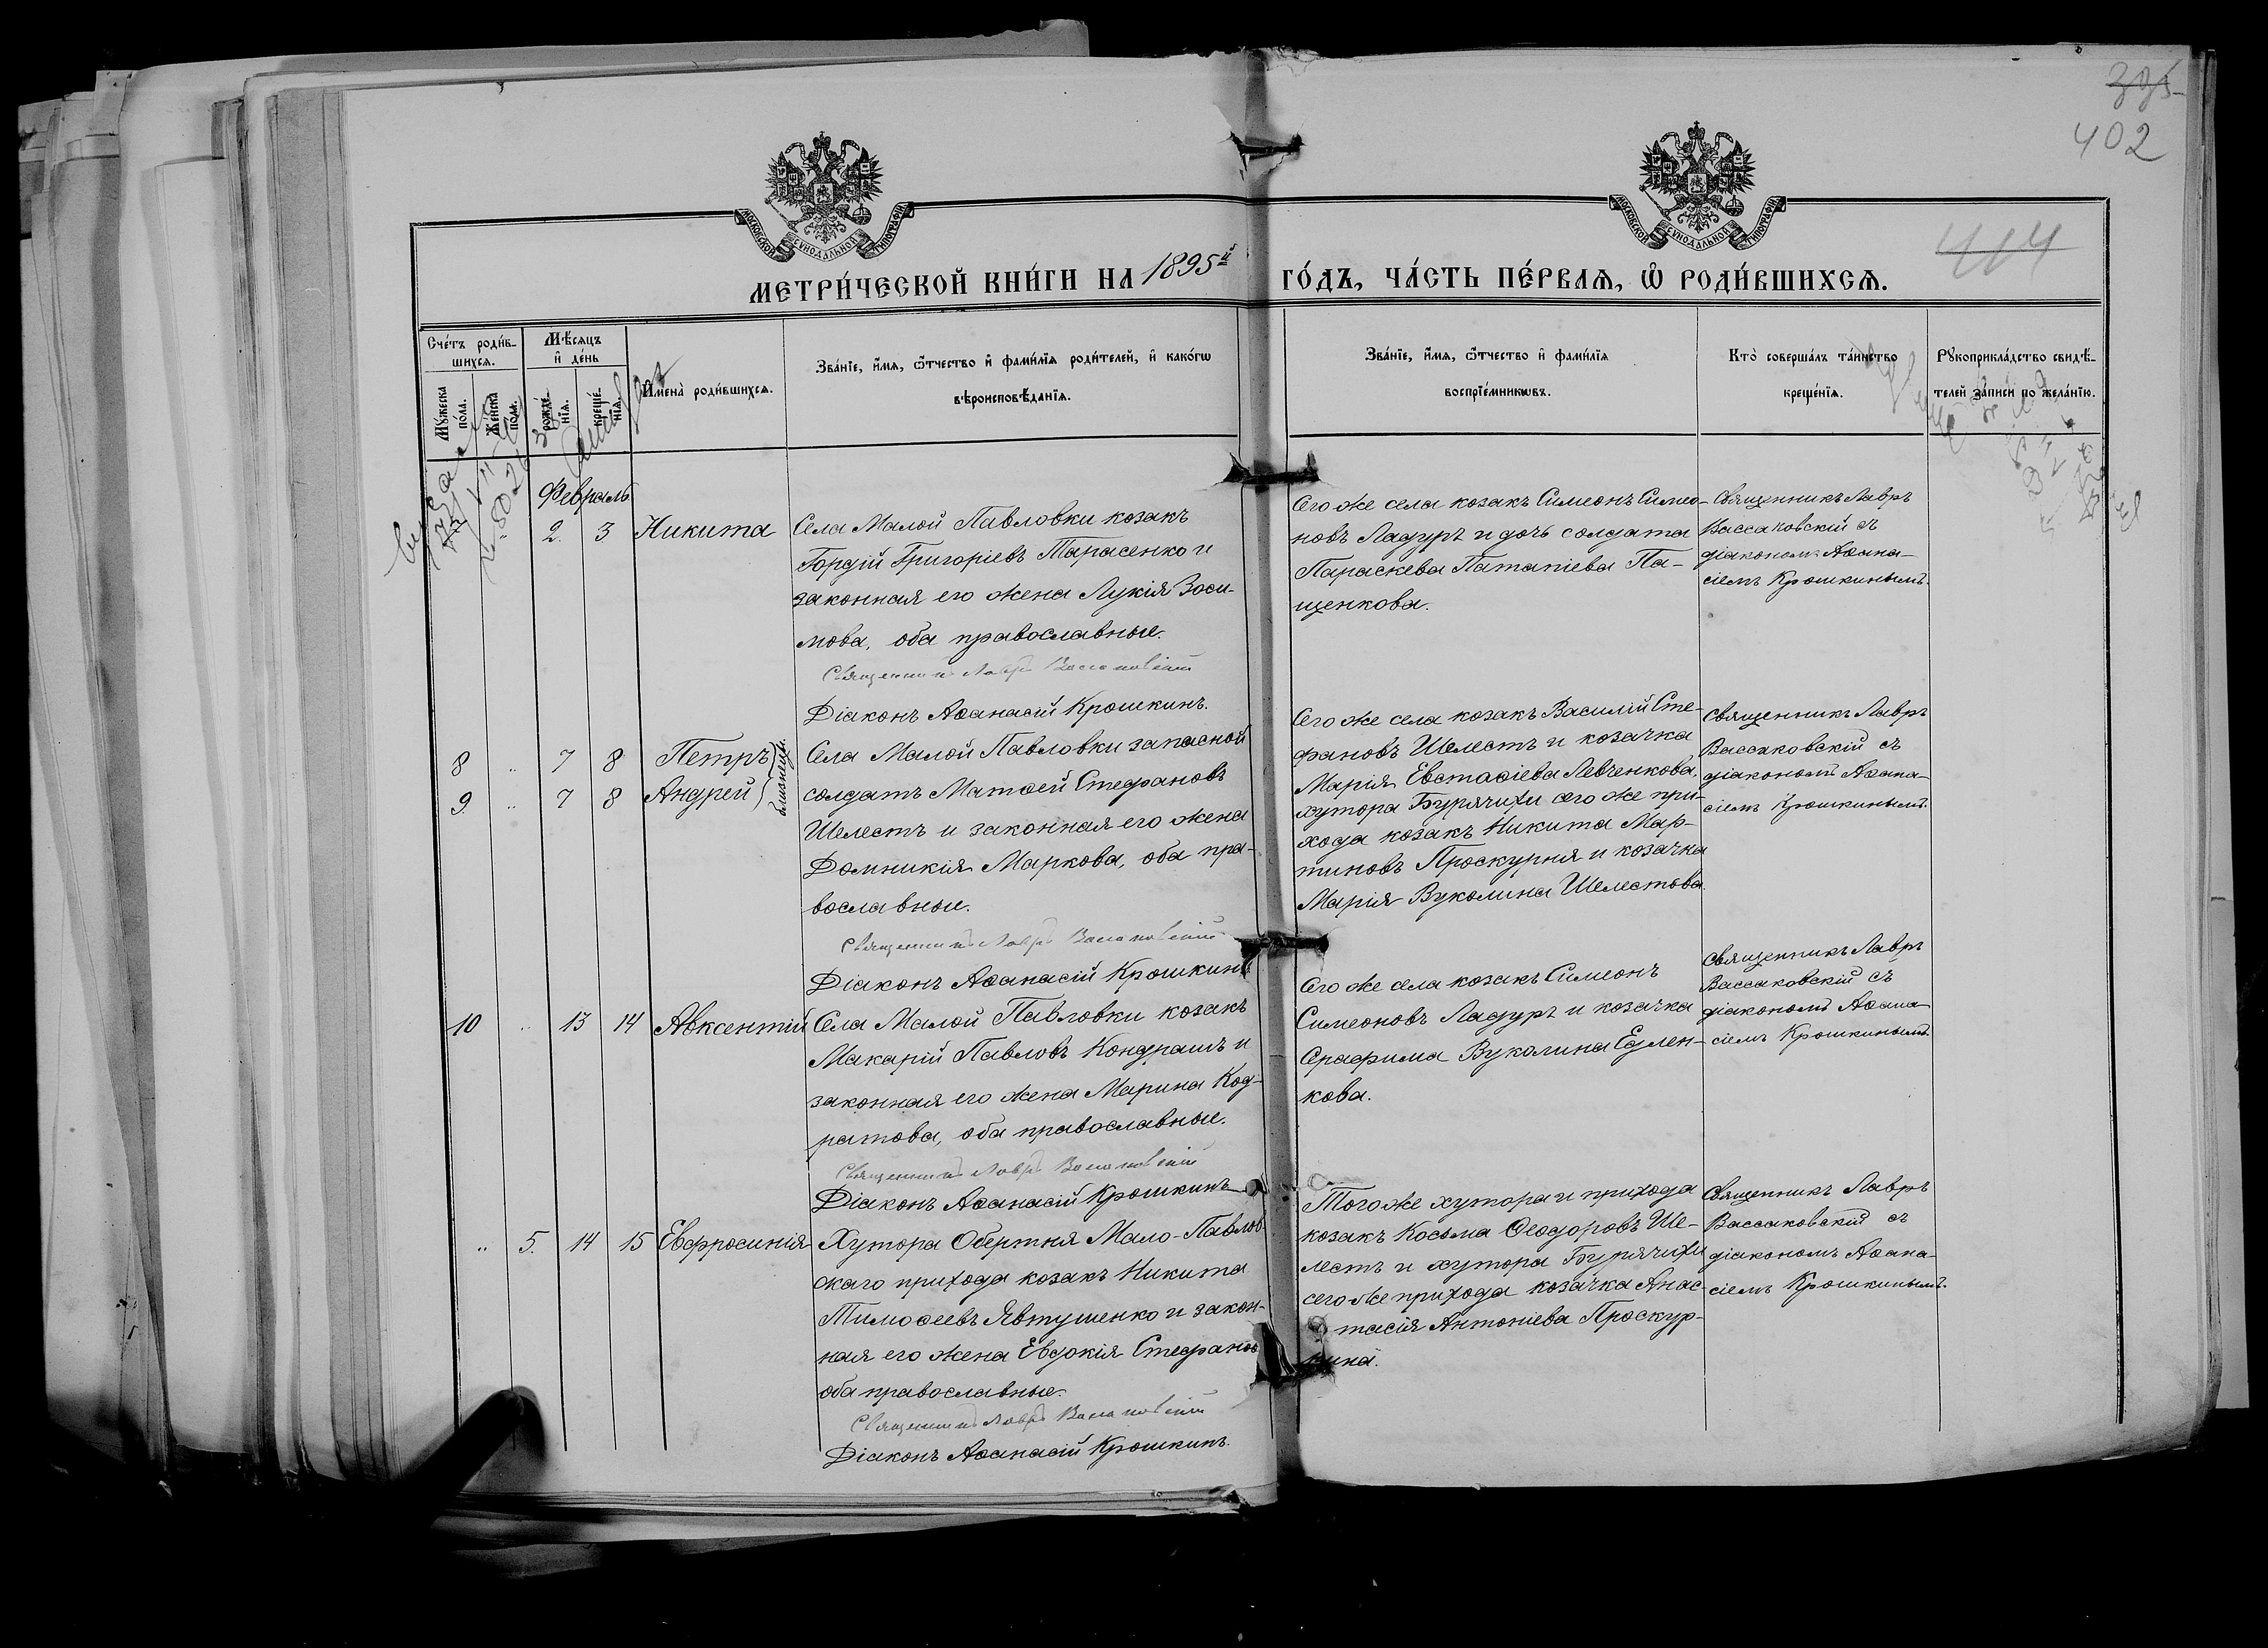 395
402
414
МОСКОВСКОЙ СѴНОДАЛЬНОЙ ТИПОГРАФІИ
МОСКОВСКОЙ СѴНОДАЛЬНОЙ ТИПОГРАФІИ
МЕТРИ́ЧЕСКОЙ КНИ́ГИ НА 1895й ГО́ДЪ, ЧА́СТЬ ПЕ́РВАѦ, Ѡ҆ РОДИ́ВШИХСѦ.
Сче́тъ роди́в-
шихся.
Мꙋ́жеска
по́ла.
Же́нска
по́ла.
Мѣ́сяцъ
и҆ де́нь
рожде́-
нїѧ.
креще́-
нїѧ.
И҆мена̀ роди́вшихсѧ.
Зва́нїе, и҆́мѧ, ѻ҆́тчество и҆ фами́лїѧ роди́телей, и҆ како́гѡ
вѣроисповѣ́данїѧ.
Зва́нїе, и҆́мѧ, ѻ҆́тчество и҆ фами́лїѧ
воспрїе́мникѡвъ.
Кто̀ соверша́лъ та́инство
креще́нїѧ.
Рꙋкоприкла́дство свидѣ́-
телей за́писи по жела́нїю.
Февраль
2. 3 Никита
Села Малой Павловки козакъ
Гордій Григоріевъ Тарасенко и
законная его жена Лукія Зоси-
мова, оба православные.
Священникъ Лавръ Вассаковскій
Діаконъ Аѳанасій Крошкинъ.
Сего же села козакъ Симеонъ Симео-
новъ Ладуръ и дочь солдата
Параскева Патапіева Па-
щенкова.
Священникъ Лавръ
Вассаковскій съ
діакономъ Аѳана-
сіемъ Крошкинымъ.
8 „ 7 8 Петръ
9. „ 7 8 Андрей
близнецы.
Села Малой Павловки запасной
солдатъ Матѳей Стефановъ
Шелестъ и законная его жена
Домникія Маркова, оба пра-
вославные.
Священникъ Лавръ Вассаковскій
Діаконъ Аѳанасій Крошкинъ
Сего же села козакъ Василій Сте-
фановъ Шелестъ и козачка
Марія Евстаѳіева Левченкова,
хутора Бурячихи сего же при-
хода козакъ Никита Мар-
тиновъ Проскурня и козачка
Марія Вуколина Шелестова.
Священникъ Лавръ
Вассаковскій съ
діакономъ Аѳана-
сіемъ Крошкинымъ.
10 „ 13 14 Авксентій
Села Малой Павловки козакъ
Макарій Павловъ Кондрашъ и
законная его жена Марина Код-
ратова, оба православные.
Священникъ Лавръ Вассаковскій
Діаконъ Аѳанасій Крошкинъ
Сего же села козакъ Симеонъ
Симеоновъ Ладуръ и козачка
Серафима Вуколина Едлен-
кова.
Священникъ Лавръ
Вассаковскій съ
діакономъ Аѳана-
сіемъ Крошкинымъ.
„ 5. 14 15 Евфросинія
Хутора Обертня Мало-Павлов-
скаго прихода козакъ Никита
Тимоѳеевъ Явтушенко и закон-
ная его жена Евдокія Стефанов
оба православные.
Священникъ Лавръ Вассаковскій
Діаконъ Аѳанасій Крошкинъ.
Того же хутора и прихода
козакъ Косьма Ѳеодоровъ Ше-
лестъ и хутора Бурячихи
сего же прихода козачка Анас-
тасія Антоніева Проскур-
нина.
Священникъ Лавръ
Вассаковскій съ
діакономъ Аѳана-
сіемъ Крошкинымъ.